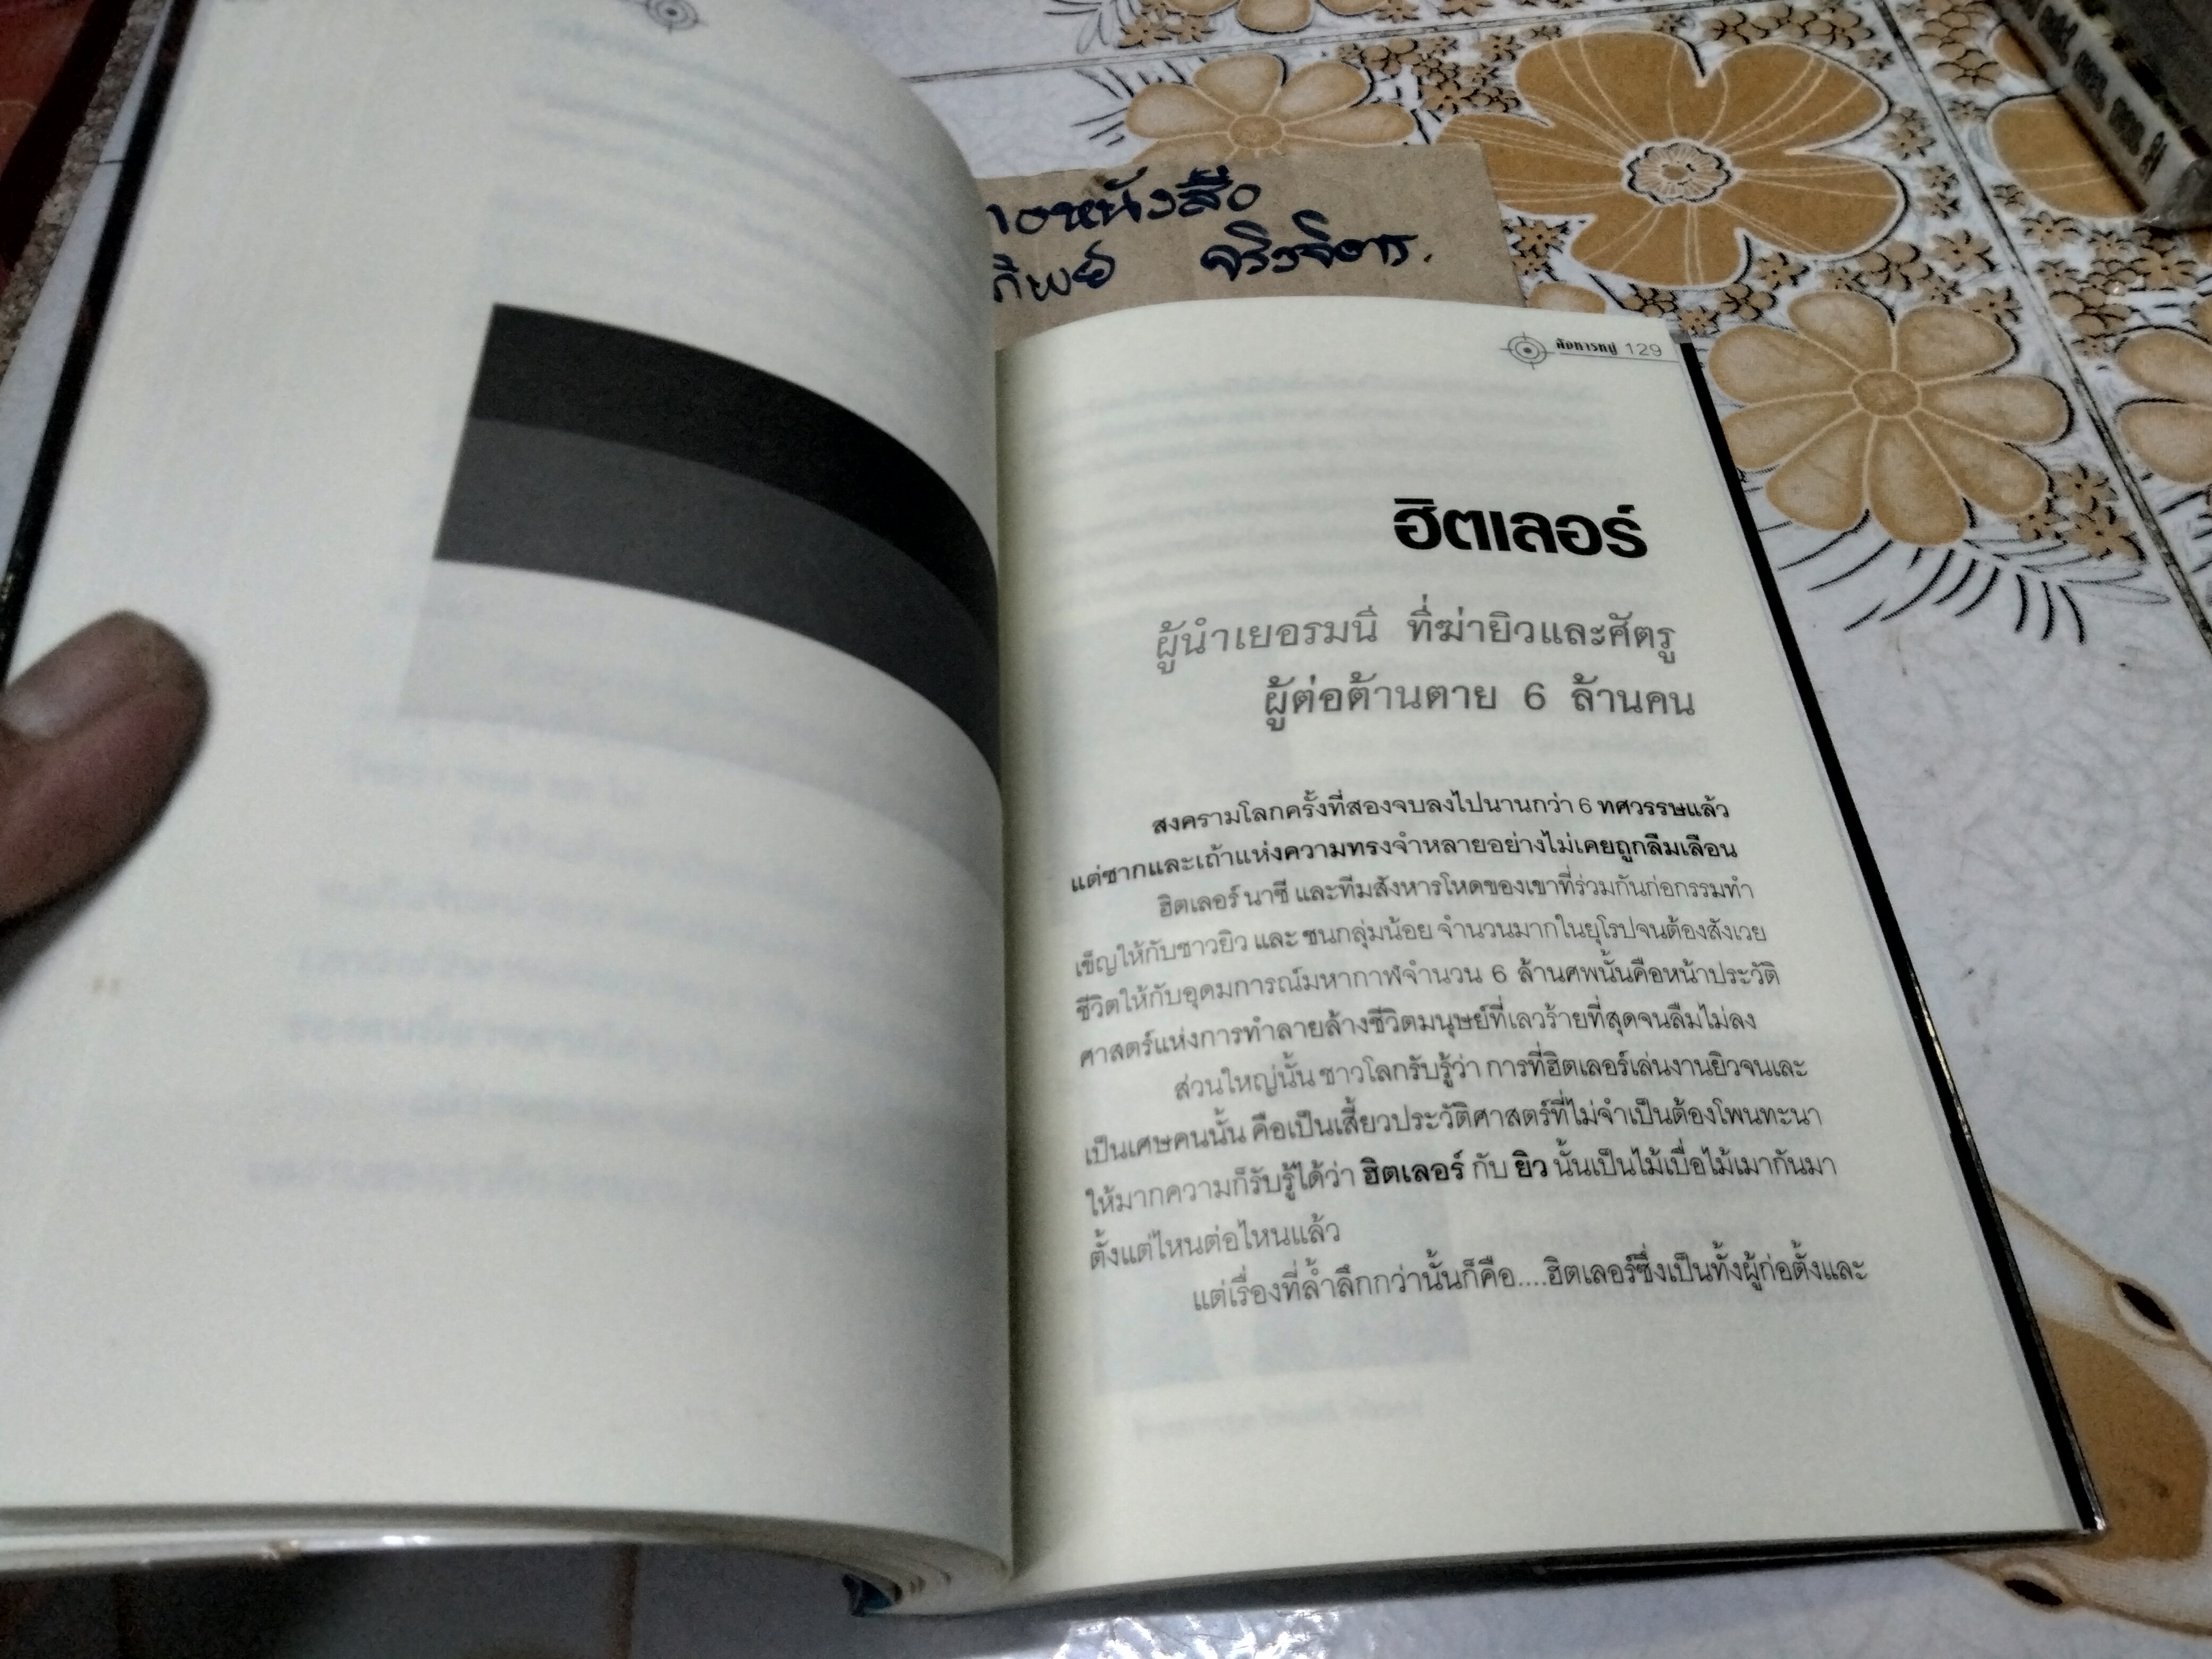 หนังสือ
สังหารหมู่ 129
ฮิตเลอร์
ผู้นำเยอรมนี ที่ฆ่ายิวและศัตรู
ผู้ต่อต้านตาย 6 ล้านคน
สงครามโลกครั้งที่สองจบลงไปนานกว่า 6 ทศวรรษแล้ว
แต่ซากและเถ้าแห่งความทรงจำหลายอย่างไม่เคยถูกลืมเลือน
ฮิตเลอร์ นาซี และทีมสังหารโหดของเขาที่ร่วมกันก่อกรรมทำ
เข็ญให้กับชาวยิว และ ชนกลุ่มน้อย จำนวนมากในยุโรปจนต้องสังเวย
ชีวิตให้กับอุดมการณ์มหากาฬจำนวน 6 ล้านศพนั้นคือหน้าประวัติ
ศาสตร์แห่งการทำลายล้างชีวิตมนุษย์ที่เลวร้ายที่สุดจนลืมไม่ลง
ส่วนใหญ่นั้น ชาวโลกรับรู้ว่า การที่ฮิตเลอร์เล่นงานยิวจนเละ
เป็นเศษคนนั้น คือเป็นเสี้ยวประวัติศาสตร์ที่ไม่จำเป็นต้องโพนทะนา
ให้มากความก็รับรู้ได้ว่า ฮิตเลอร์ กับ ยิว นั้นเป็นไม้เบื่อไม้เมากันมา
ตั้งแต่ไหนต่อไหนแล้ว
แต่เรื่องที่ล้ำลึกกว่านั้นก็คือ....ฮิตเลอร์ซึ่งเป็นทั้งผู้ก่อตั้งและ